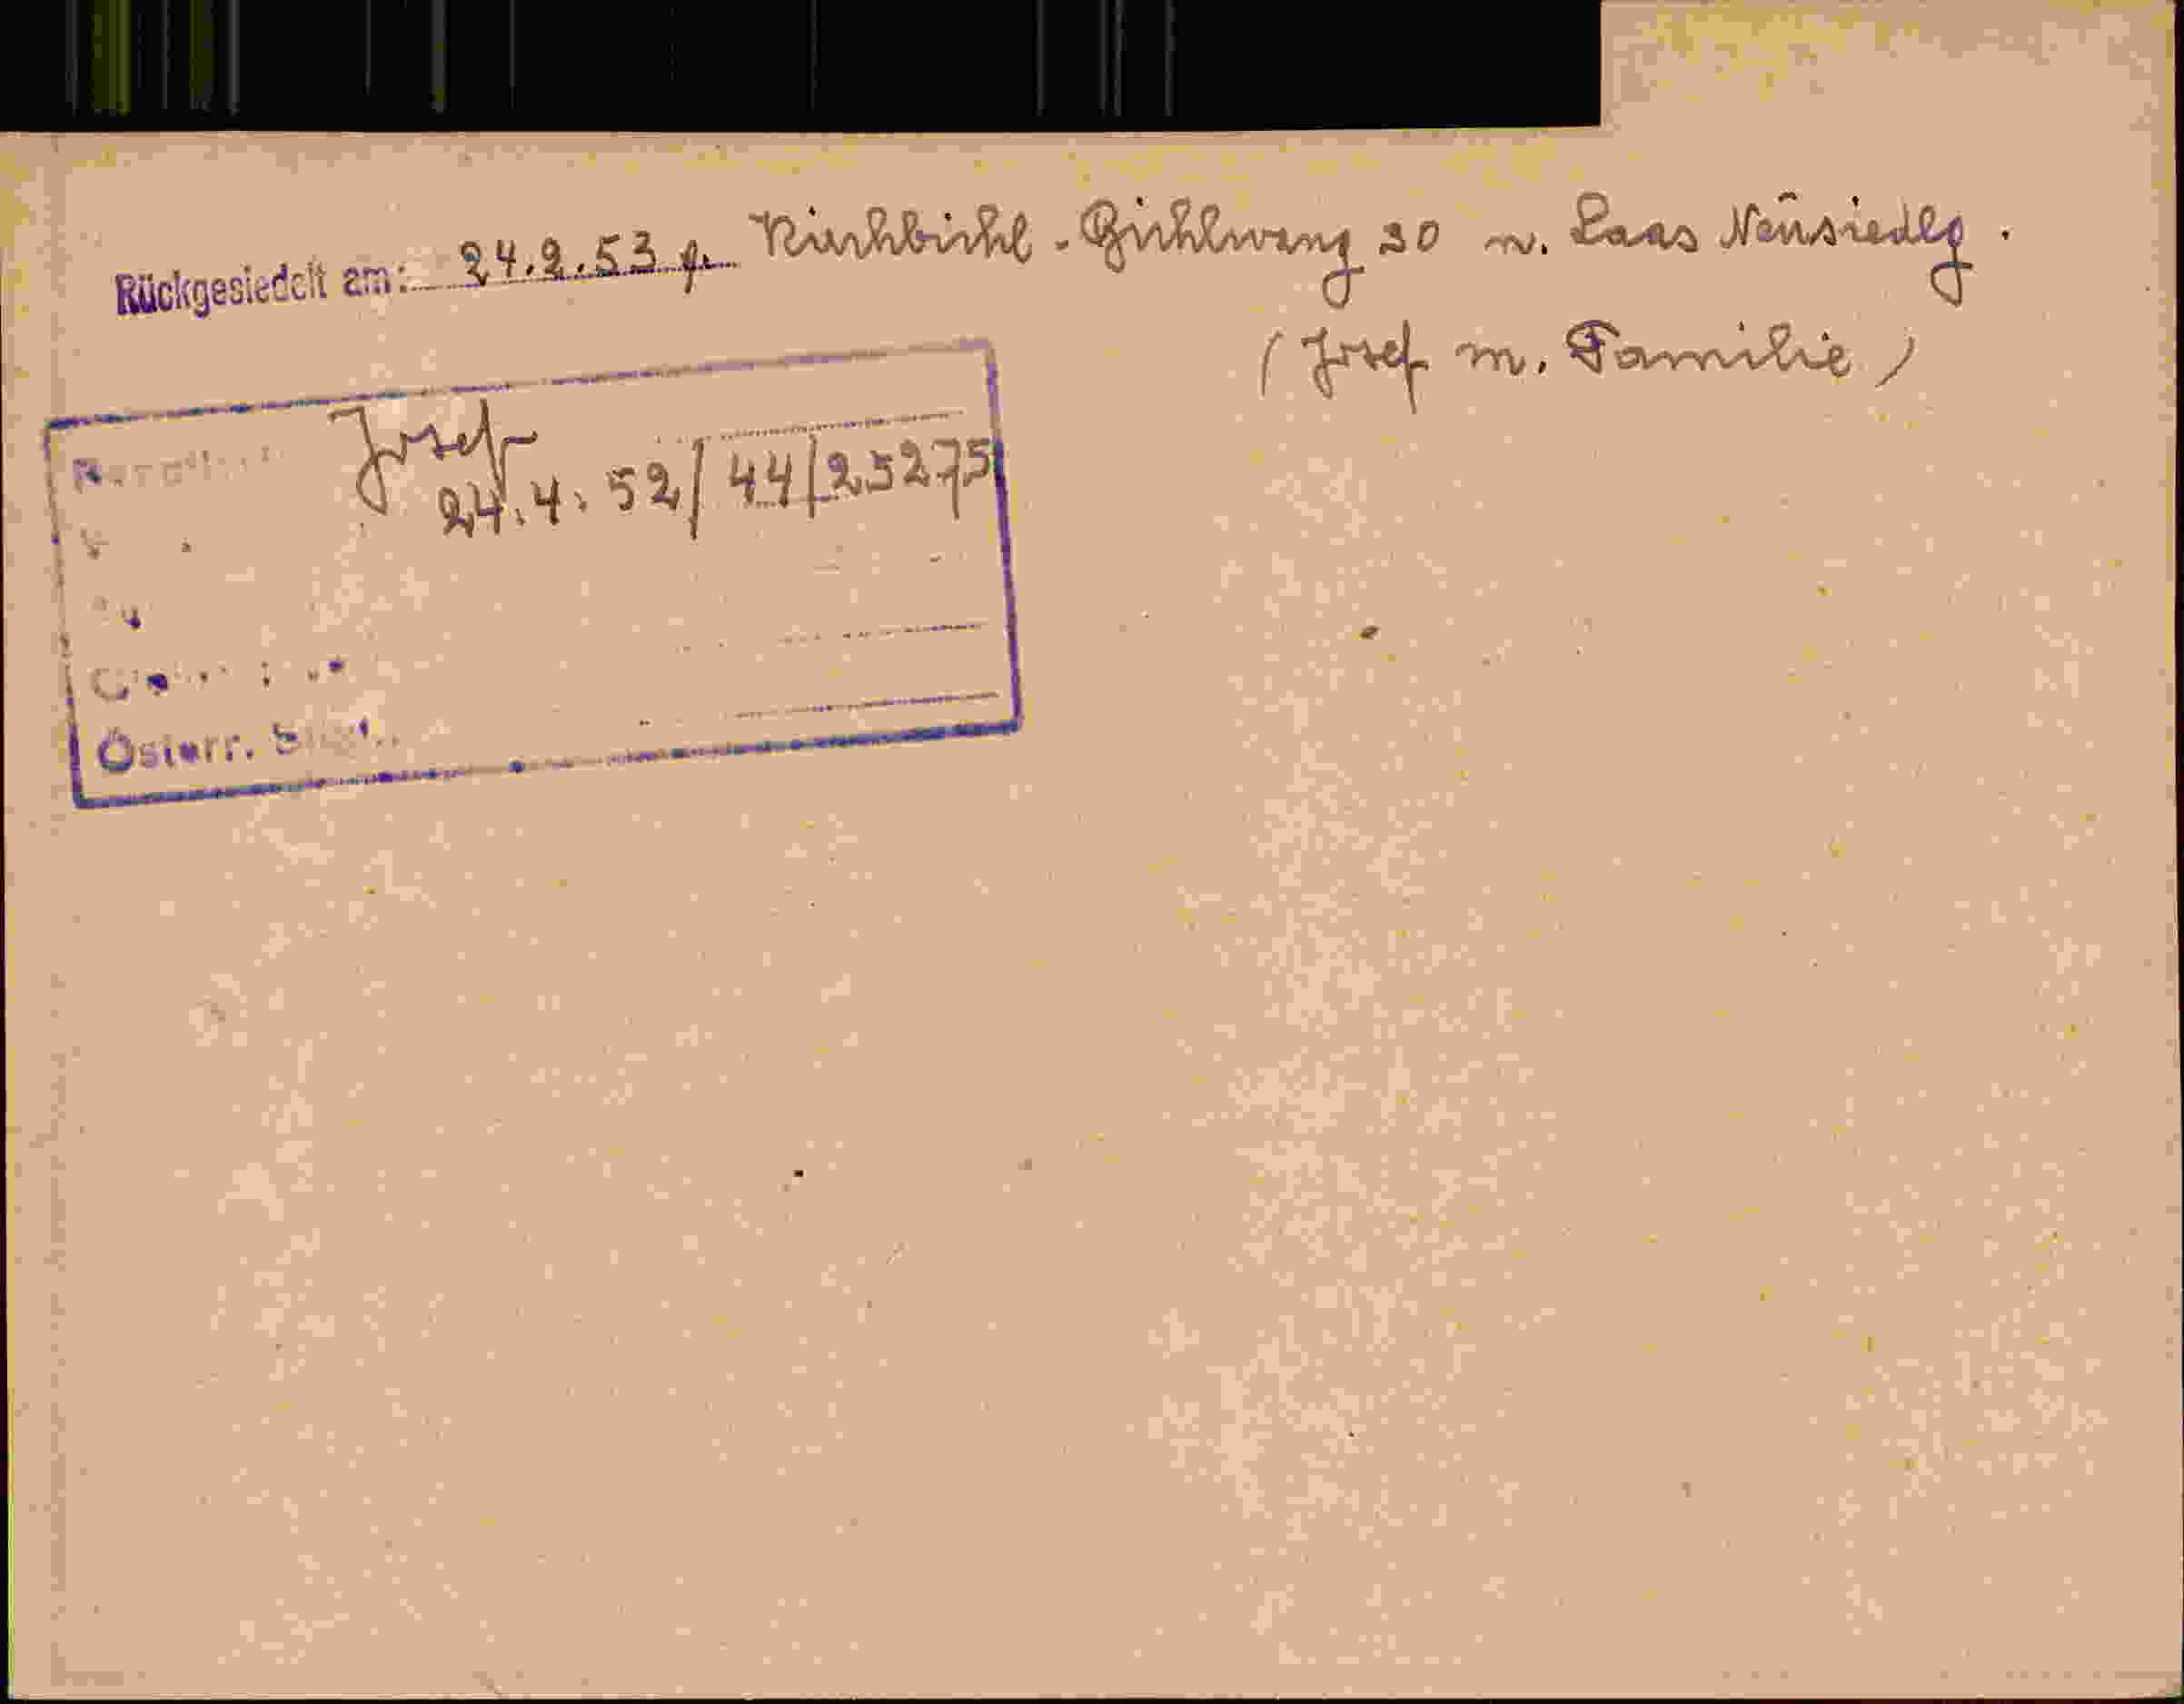 Rückgesiedelt am: 24.2.53 v. Kirchbichl - Bichlwang 20 n. Laas Neusiedlg.
(Josef m. Familie)
Josef
24.4.52/44/25275
Österr.